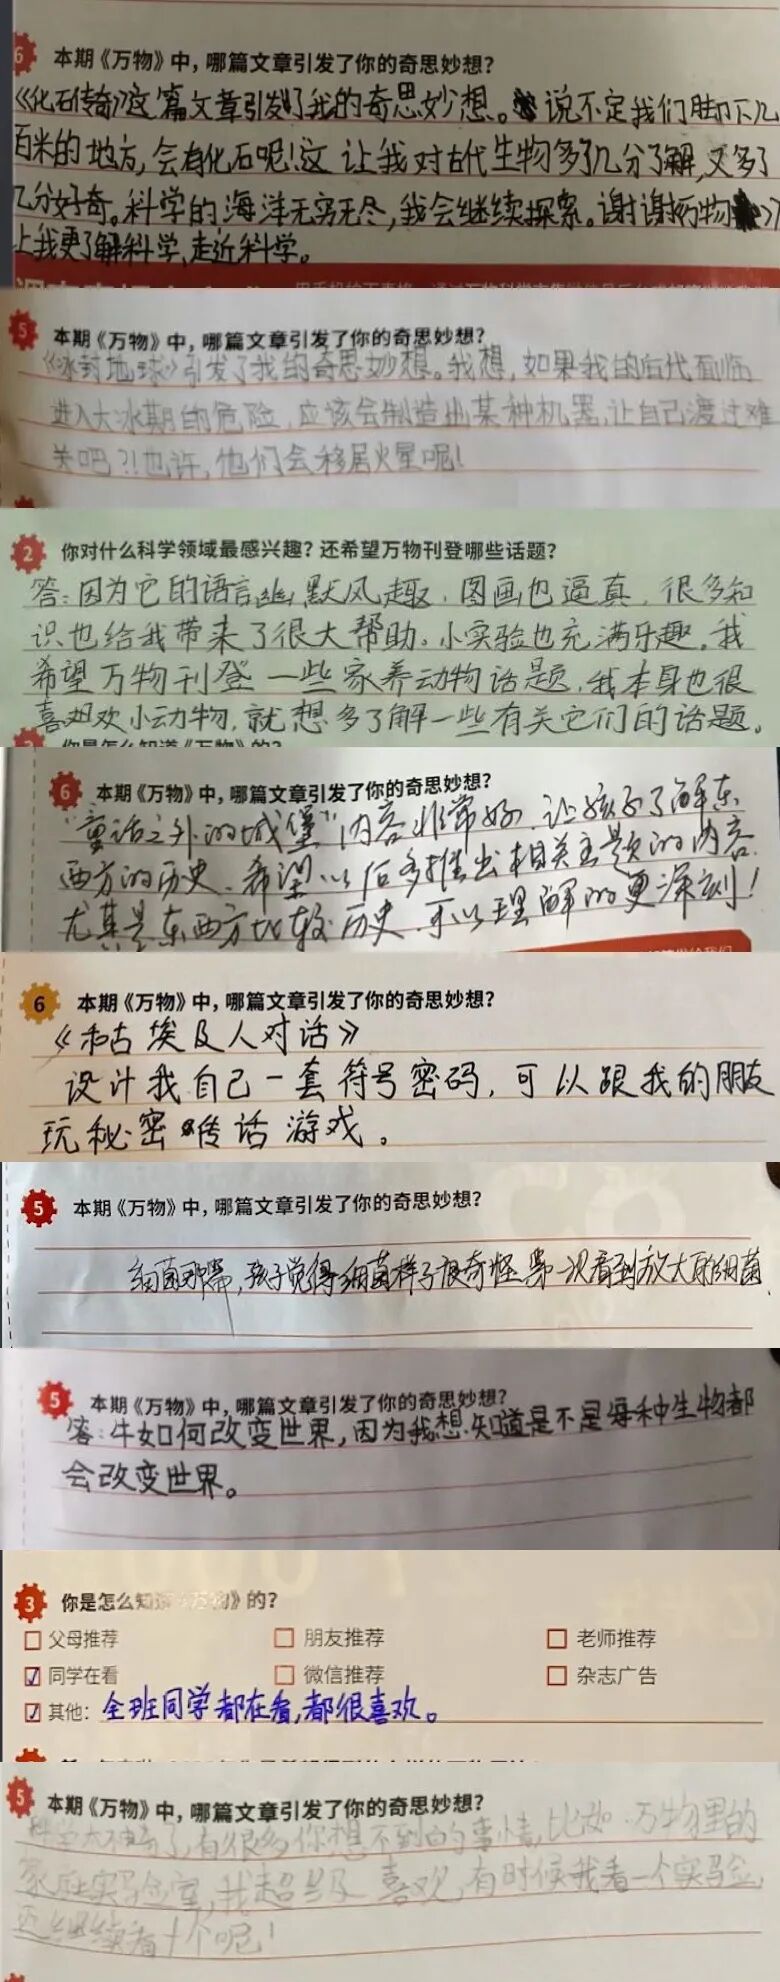 6 本期《万物》中，哪篇文章引发了你的奇思妙想？
《化石传奇》这篇文章引发了我的奇思妙想。说不定我们脚下几
百米的地方，会有化石呢！这让我对古代生物多了几分了解，又多了
几分好奇。科学的海洋无穷无尽，我会继续探索。谢谢《万物》
让我更了解科学，走近科学。
5 本期《万物》中，哪篇文章引发了你的奇思妙想？
《冰封地球》引发了我的奇思妙想。我想，如果我的后代面临
进入大冰期的危险，应该会制造出某种机器，让自己渡过难
关吧？！也许，他们会移居火星呢！
2 你对什么科学领域最感兴趣？还希望万物刊登哪些话题？
答：因为它的语言幽默风趣，图画也逼真，很多知
识也给我带来了很大帮助。小实验也充满乐趣。我
希望万物刊登一些家养动物话题，我本身也很
喜欢小动物，就想多了解一些有关它们的话题。
你是怎么知道《万物》的？
6 本期《万物》中，哪篇文章引发了你的奇思妙想？
“童话之外的城堡”内容非常好，让孩子了解东
西方的历史，希望以后多推出相关主题的内容，
尤其是东西方比较历史，可以理解的更深刻！
6 本期《万物》中，哪篇文章引发了你的奇思妙想？
《和古埃及人对话》
设计我自己一套符号密码，可以跟我的朋友
玩秘密传话游戏。
5 本期《万物》中，哪篇文章引发了你的奇思妙想？
细菌那篇，孩子觉得细菌样子很奇怪，第一次看到放大后的细菌
5 本期《万物》中，哪篇文章引发了你的奇思妙想？
答：牛如何改变世界，因为我想知道是不是每种生物都
会改变世界。
3 你是怎么知道《万物》的？
父母推荐 朋友推荐 老师推荐
同学在看 微信推荐 杂志广告
其他：全班同学都在看，都很喜欢。
5 本期《万物》中，哪篇文章引发了你的奇思妙想？
科学太神奇了，有很多你想不到的事情，比如：万物里的
家庭实验室，我超级喜欢，有时候我看一个实验，
还继续看十个呢！